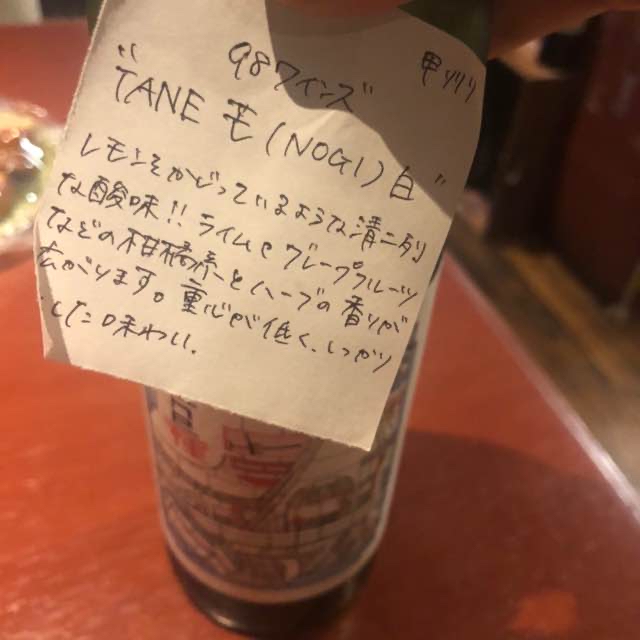 98ワインズ 甲州
"TANE 芒(NOGI)白"
レモンをかじっているような清冽
な酸味!! ライムやグレープフルーツ
などの柑橘系とハーブの香りが
広がります。重心が低く、しっかり
した味わい。